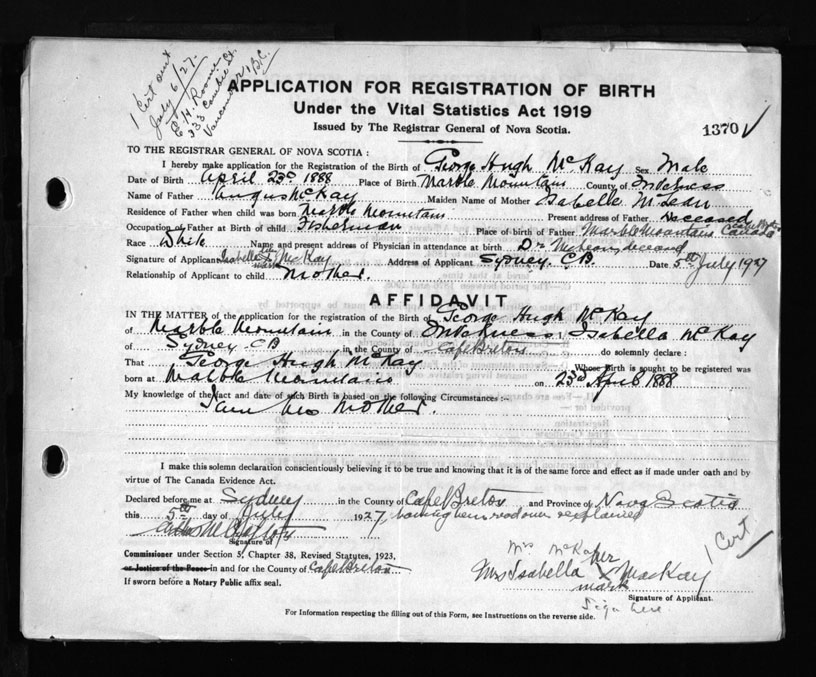 1 Cert sent
July 6/27.
333 Cambie St.
Vancouver, B.C.
APPLICATION FOR REGISTRATION OF BIRTH
Under the Vital Statistics Act 1919
Issued by The Registrar General of Nova Scotia.
1370
TO THE REGISTRAR GENERAL OF NOVA SCOTIA :
I hereby make application for the Registration of the Birth of George Hugh McKay Sex Male
Date of Birth April 23d 1888 Place of Birth Marble Mountain County of Inverness
Name of Father Angus McKay Maiden Name of Mother Isabelle McLean
Residence of Father when child was born Marble Mountain Present address of Father deceased
Occupation of Father at Birth of child Fisherman Place of birth of Father Marble Mountain Canada
Race White Name and present address of Physician in attendance at birth Dr McLean, deceased
Signature of Applicant Isabelle X McKay Address of Applicant Sydney. C.B. Date 5th July 1927
Relationship of Applicant to child Mother.
AFFIDAVIT
IN THE MATTER of the application for the registration of the Birth of George Hugh McKay
of Marble Mountain in the County of Inverness, Isabella McKay
of Sydney CB in the County of Cape Breton do solemnly declare :
That George Hugh McKay Whose Birth is sought to be registered was
born at Marble Mountain on 23d April 1888
My knowledge of the fact and date of such Birth is based on the following Circumstances :—
I am his Mother.
I make this solemn declaration conscientiously believing it to be true and knowing that it is of the same force and effect as if made under oath and by
virtue of The Canada Evidence Act.
Declared before me at Sydney in the County of Cape Breton and Province of Nova Scotia
this 5th day of July 1927, having been read over & explained
Signature of
Commissioner under Section 3, Chapter 38, Revised Statutes, 1923,
or Justice of the Peace in and for the County of Cape Breton
If sworn before a Notary Public affix seal.
1 Cert
Mrs McKay
her
Mrs Isabella X MacKay
mark
Signature of Applicant.
Sign here
For Information respecting the filling out of this Form, see Instructions on the reverse side.